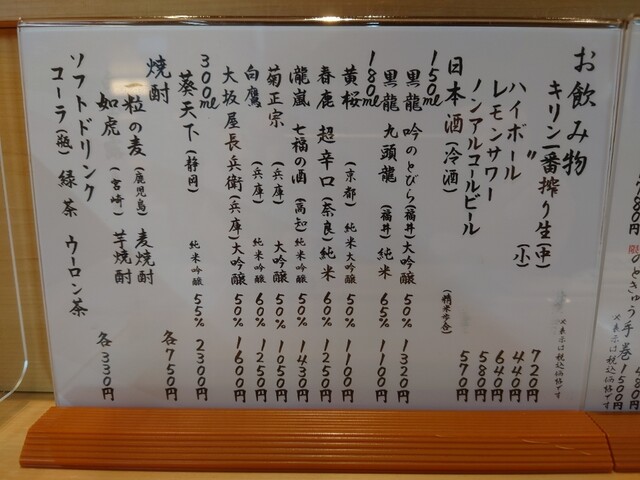 お飲み物
※表示は税込価格です
キリン一番搾り生(中) 720円
〃 (小) 440円
ハイボール 640円
レモンサワー 580円
ノンアルコールビール 570円
日本酒(冷酒) (精米歩合)
150ml
黒龍 吟のとびら(福井)大吟醸 50% 1320円
黒龍 九頭龍 (福井)純米 65% 1100円
180ml
黄桜 (京都) 純米大吟醸 50% 1100円
春鹿 超辛口(奈良)純米 60% 1250円
瀧嵐 七福の酒(高知)純米大吟醸 50% 1430円
菊正宗 (兵庫) 大吟醸 50% 1050円
白鷹 (兵庫) 純米吟醸 60% 1250円
大坂屋長兵衛(兵庫)大吟醸 50% 1600円
300ml
葵天下(静岡) 純米吟醸 55% 2300円
焼酎 各750円
一粒の麦(鹿児島)麦焼酎
如虎 (宮崎)芋焼酎
ソフトドリンク 各330円
コーラ(瓶) 緑茶 ウーロン茶
のときゅう手巻
1500円
※表示は税込価格です